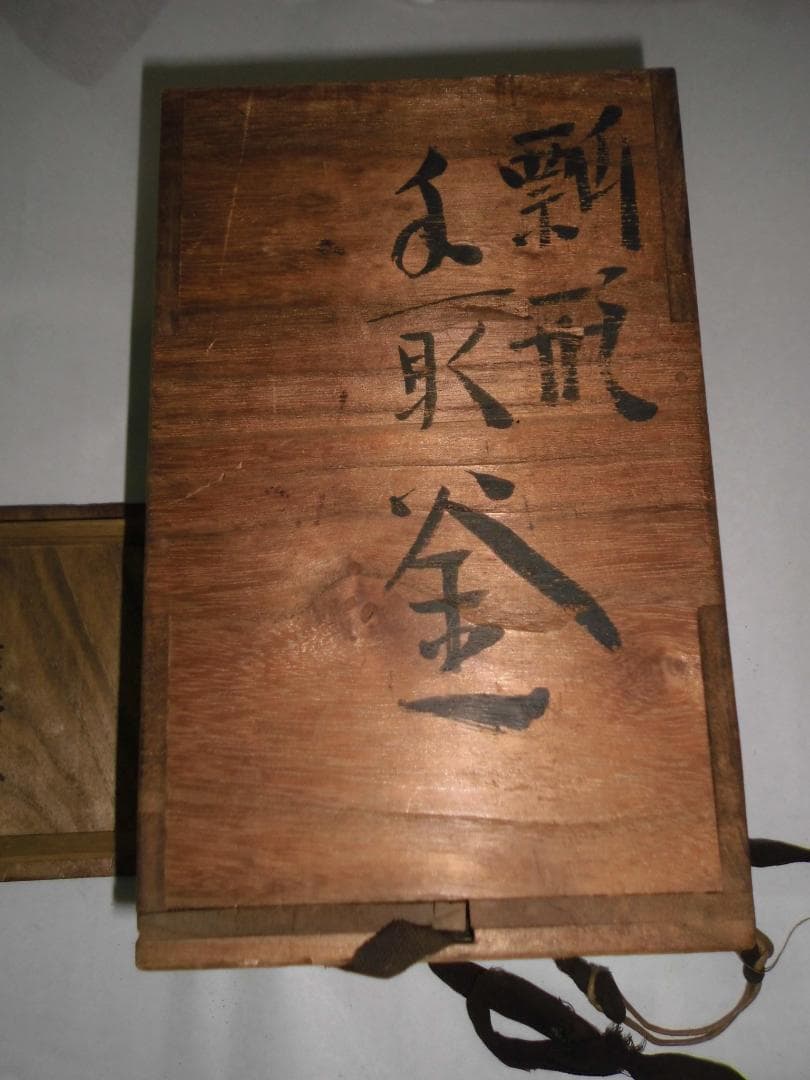 瓢形
手取釜